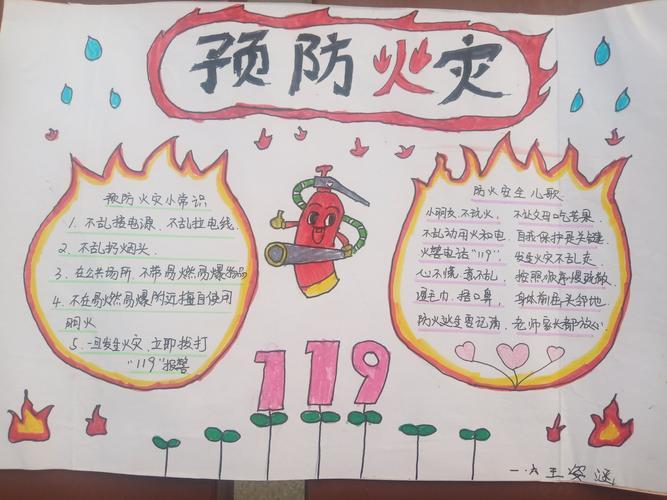 预防火灾
预防火灾小常识
1. 不乱接电源、不乱拉电线
2. 不乱扔烟头.
3. 在公共场所、不带易燃易爆物品
4. 不在易燃易爆附近擅自使用
明火
5. 一旦发生火灾、立即拨打
"119"报警
防火安全儿歌
小朋友、不玩火、 不让父母吃苦果.
不乱动用火和电 自我保护是关键
火警电话"119" 发生火灾不乱走
心不慌、意不乱 按照顺序慢疏散
湿毛巾、捂口鼻 身体前屈头邻地
防火逃生要记清 老师家长都放心
119
一.六 王姿涵